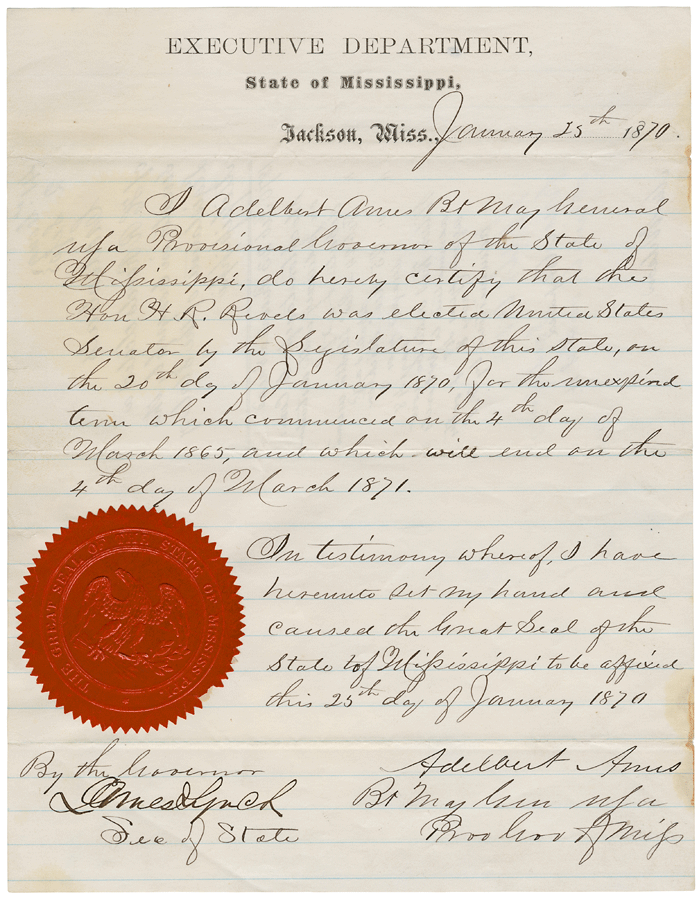 EXECUTIVE DEPARTMENT,
State of Mississippi,
Jackson, Miss., January 25th 1870.
I Adelbert Ames Bt Maj General
USA Provisional Governor of the State of
Mississippi, do hereby certify that the
Hon H. R. Revels was elected United States
Senator by the Legislature of this State, on
the 20th day of January 1870, for the unexpired
term which commenced on the 4th day of
March 1865, and which will end on the
4th day of March 1871.
In testimony whereof, I have
hereunto set my hand and
caused the Great Seal of the
State of Mississippi to be affixed
this 25th day of January 1870
THE GREAT SEAL OF THE STATE OF MISSISSIPPI
By the Governor
James Lynch
Sec of State
Adelbert Ames
Bt Maj Gen USA
Prov Gov of Miss